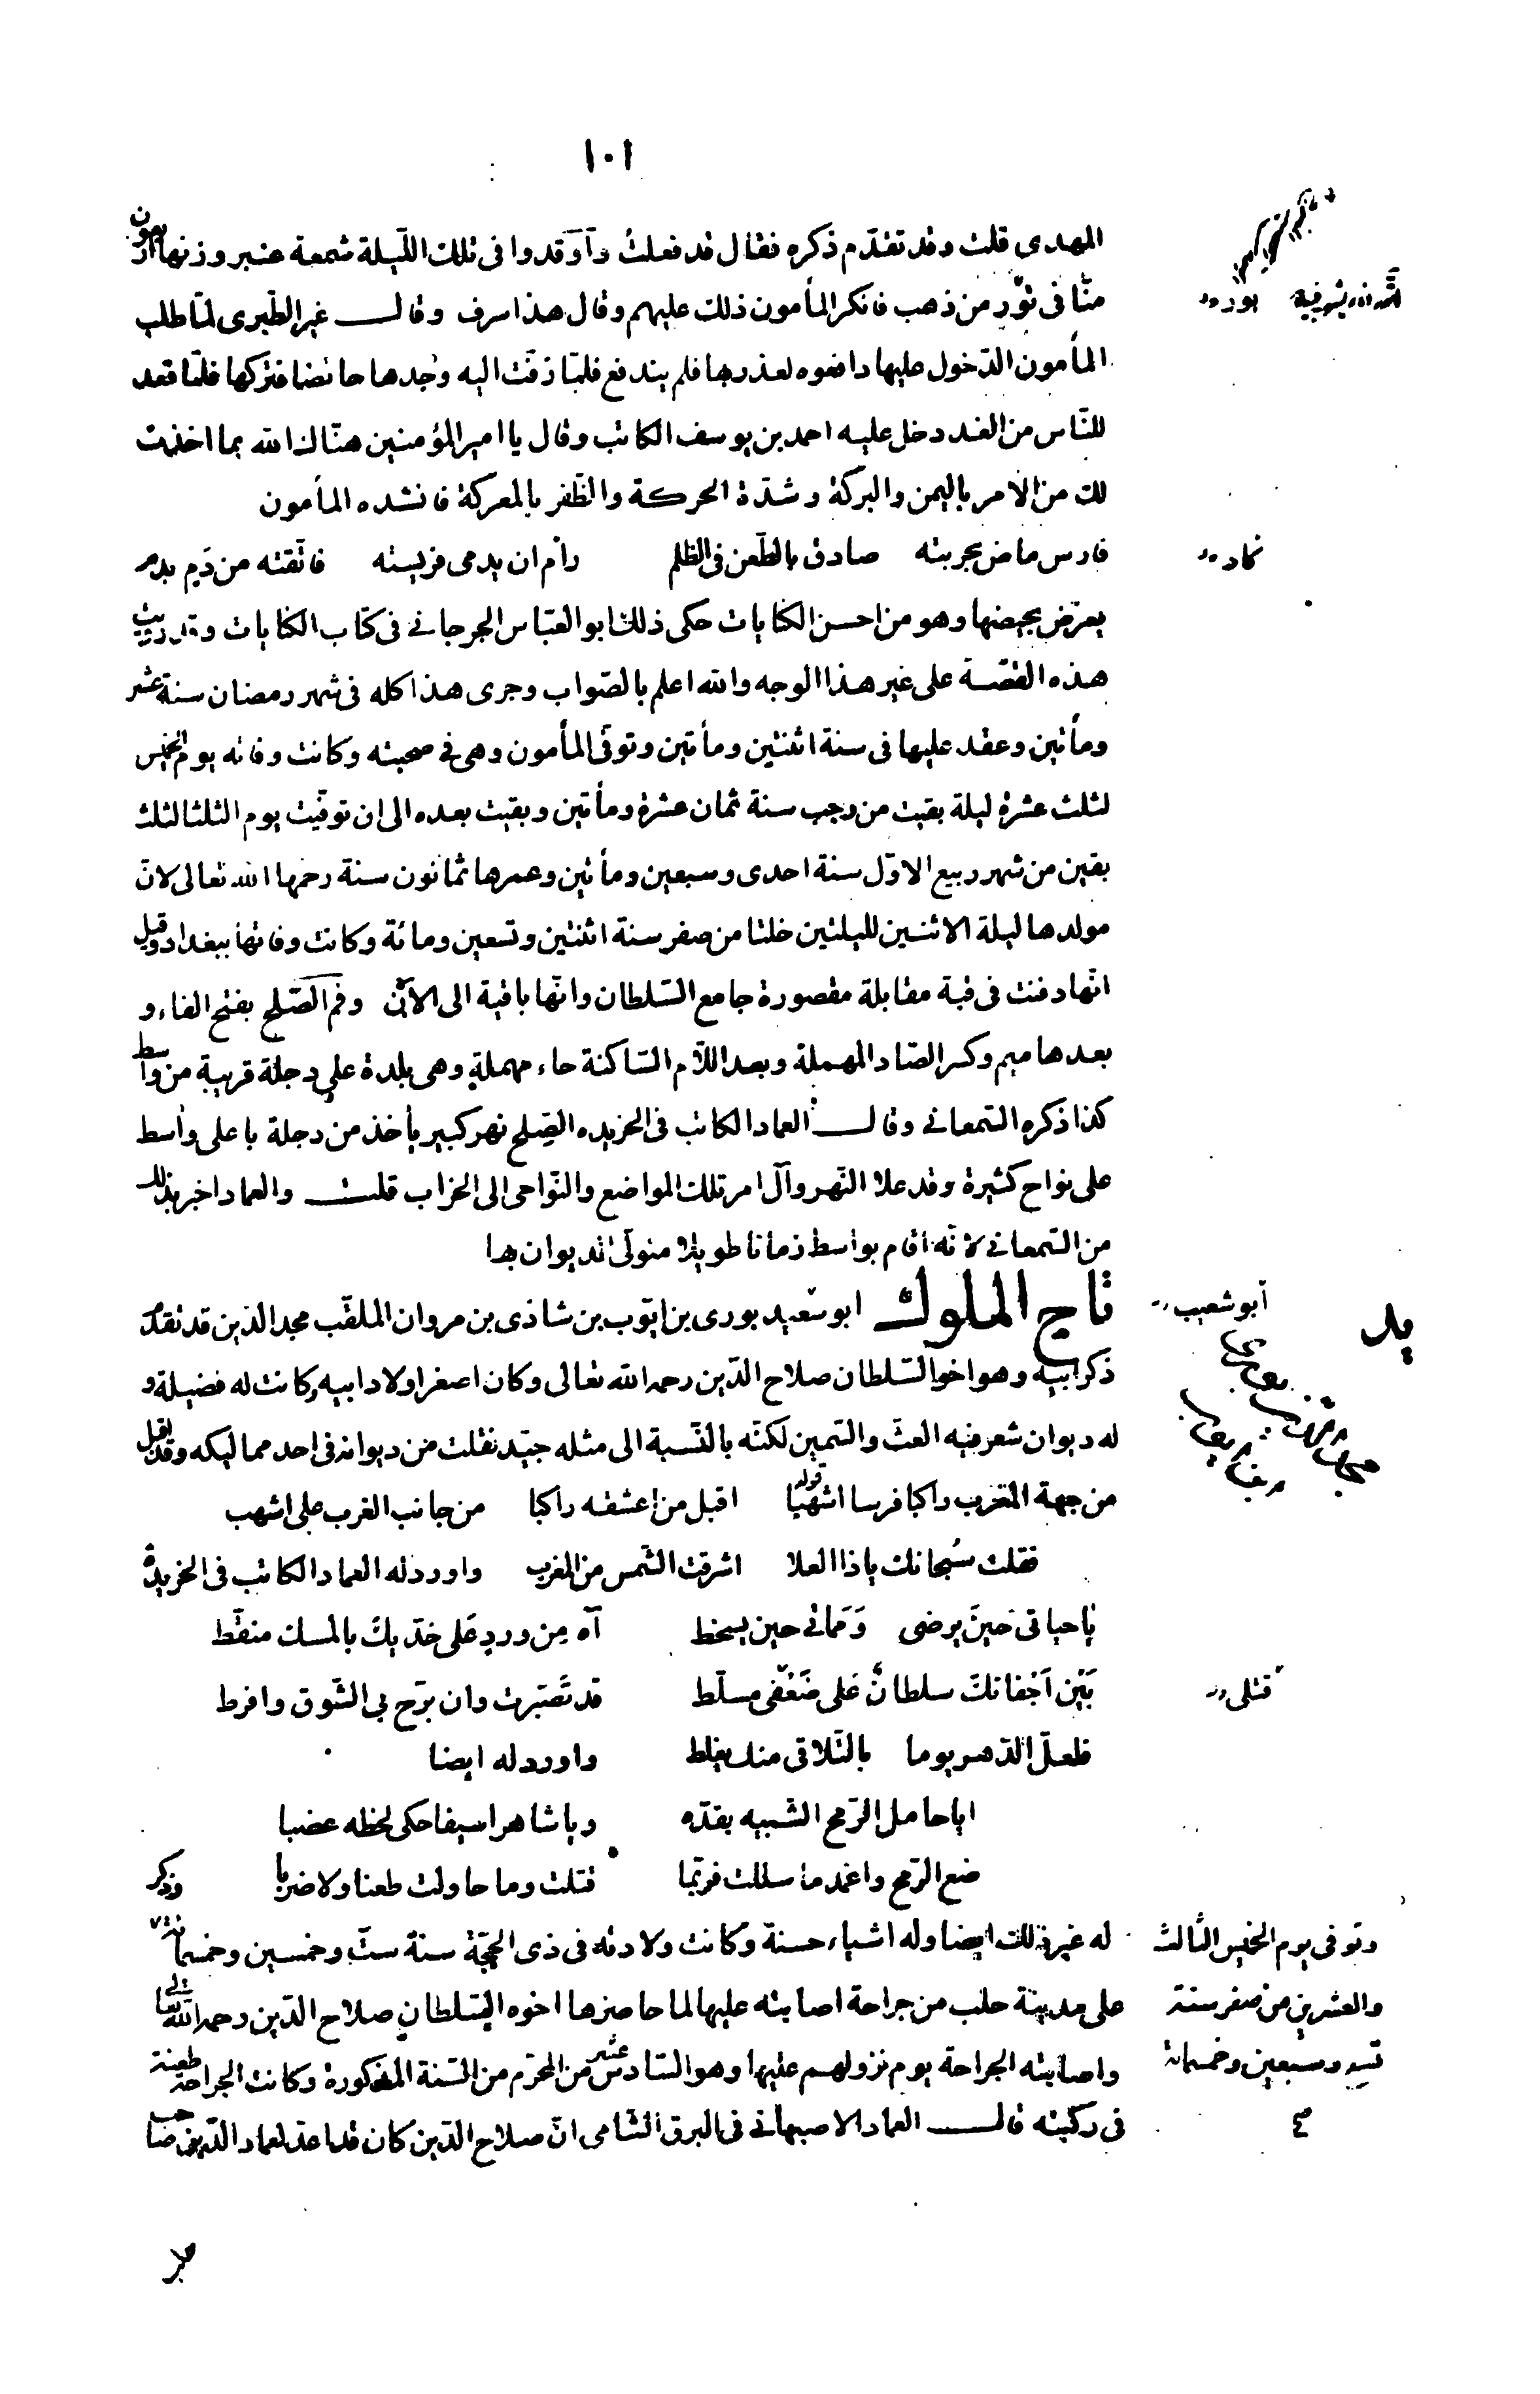 ١٠١
المهدى قلت وقد تقدّم ذكره فقال قد فعلت وأوقدوا فى تلك اللّيلة شمعة عنبر وزنها اربعون
منّا فى تور من ذهب فانكر المأمون ذلك عليهم وقال هذا سرف وقال غير الطّبرى لمّا طلب
المأمون الدّخول عليها دافعوه لعذر بها فلم يندفع فلمّا زفّت اليه وجدها حائضا فتركها فلمّا قعد
للنّاس من الغد دخل عليه احمد بن يوسف الكاتب وقال يا امير المؤمنين هنّاك الله بما اخذت
لك من الامر باليمن والبركة وشدّة الحركة والظّفر بالمعركة فانشده المأمون
فارس ماض بحربته صادق بالطّعن فى الظلم رام ان يدمى فريسته فاتّقته من دَمٍ بدم
كاد
يعرّض بحيضها وهو من احسن الكنايات حكى ذلك ابو العبّاس الجرجانى فى كتاب الكنايات وقد رويت
هذه القصّة على غير هذا الوجه والله اعلم بالصّواب وجرى هذا كله فى شهر رمضان سنة عشر
ومأتين وعقد عليها فى سنة اثنتين ومأتين وتوفّى المأمون وهى فى صحبته وكانت وفاته يوم الخميس
لثلث عشرة ليلة بقيت من رجب سنة ثمان عشرة ومأتين وبقيت بعده الى ان توفّيت يوم الثلثا لثلث
بقين من شهر ربيع الاوّل سنة احدى وسبعين ومأتين وعمرها ثمانون سنة رحمها الله تعالى لانّ
مولدها ليلة الاثنين لليلتين خلتا من صفر سنة اثنتين وتسعين ومائة وكانت وفاتها ببغداد وقيل
انّها دفنت فى قبة مقابلة مقصورة جامع السّلطان وانّها باقية الى الآن وفم الصّلح بفتح الفاء و
بعدها ميم وكسر الصّاد المهملة وبعد اللّام السّاكنة حاء مهملة وهى بلدة على دجلة قريبة من واسط
كذا ذكره السّمعانى وقال العماد الكاتب فى الخريده الصّلح نهر كبير يأخذ من دجلة باعلى واسط
على نواح كثيرة وقد علا النّهر وآل امر تلك المواضع والنّواحى الى الخراب قلت والعماد اخبر بذلك
من السّمعانى لانّه اقام بواسط زمانا طويلا متولّى الديوان بها
تاج الملوك ابو سعيد بورى بن ايّوب بن شاذى بن مروان الملقّب مجد الدّين قد تقدّم
أبو شعيب
يد
ذكر ابيه وهو اخو السّلطان صلاح الدّين رحمه الله تعالى وكان اصغر اولاد ابيه وكانت له فضيلة و
له ديوان شعر فيه الغثّ والسّمين لكنّه بالنّسبة الى مثله جيّد نقلت من ديوانه فى احد مماليكه وقد اقبل
من جهة المغرب راكبا فرسا اشهبا قوله اقبل من اعشقه راكبا من جانب الغرب على اشهب
فقلت سُبحانك ياذا العلا اشرقت الشّمس من المغرب واورد له العماد الكاتب فى الخريدة
يا حياتى حينَ يرضى وَمماتى حين يسخط آه مِن وردٍ عَلى خدّيك بالمسك منقّط
بَيْن اَجْفانكَ سلطانٌ عَلى ضَعْفى مسلّط قد تَصَبّرت وان برّح بى الشّوق وافرط
قتلى
فلعلّ الدّهر يوما بالتّلاقى منك يغلط واورد له ايضا
ايا حامل الرّمح الشّبيه بقدّه ويا شاهرا سيفا حكى لحظه عضبا
ضع الرّمح واغمد ما سللت فربّما قتلت وما حاولت طعنا ولا ضربا وذكر
له غير ذلك ايضا وله اشياء حسنة وكانت ولادته فى ذى الحجّة سنة ستّ وخمسين وخمسمائة
وتوفى يوم الخميس الثّالث
والعشرين من صفر سنة
تسع وسبعين وخمسمائة
صح
على مدينة حلب من جراحة اصابته عليها لما حاصرها اخوه السّلطان صلاح الدّين رحمه الله تعالى
واصابته الجراحة يوم نزولهم عليها وهو السّادس عشر من المحرّم من السّنة المذكورة وكانت الجراحة طعنة
فى ركبته قال العماد الاصبهانى فى البرق الشّامى انّ صلاح الدّين كان قد اعدّ لعماد الدّين صاحب